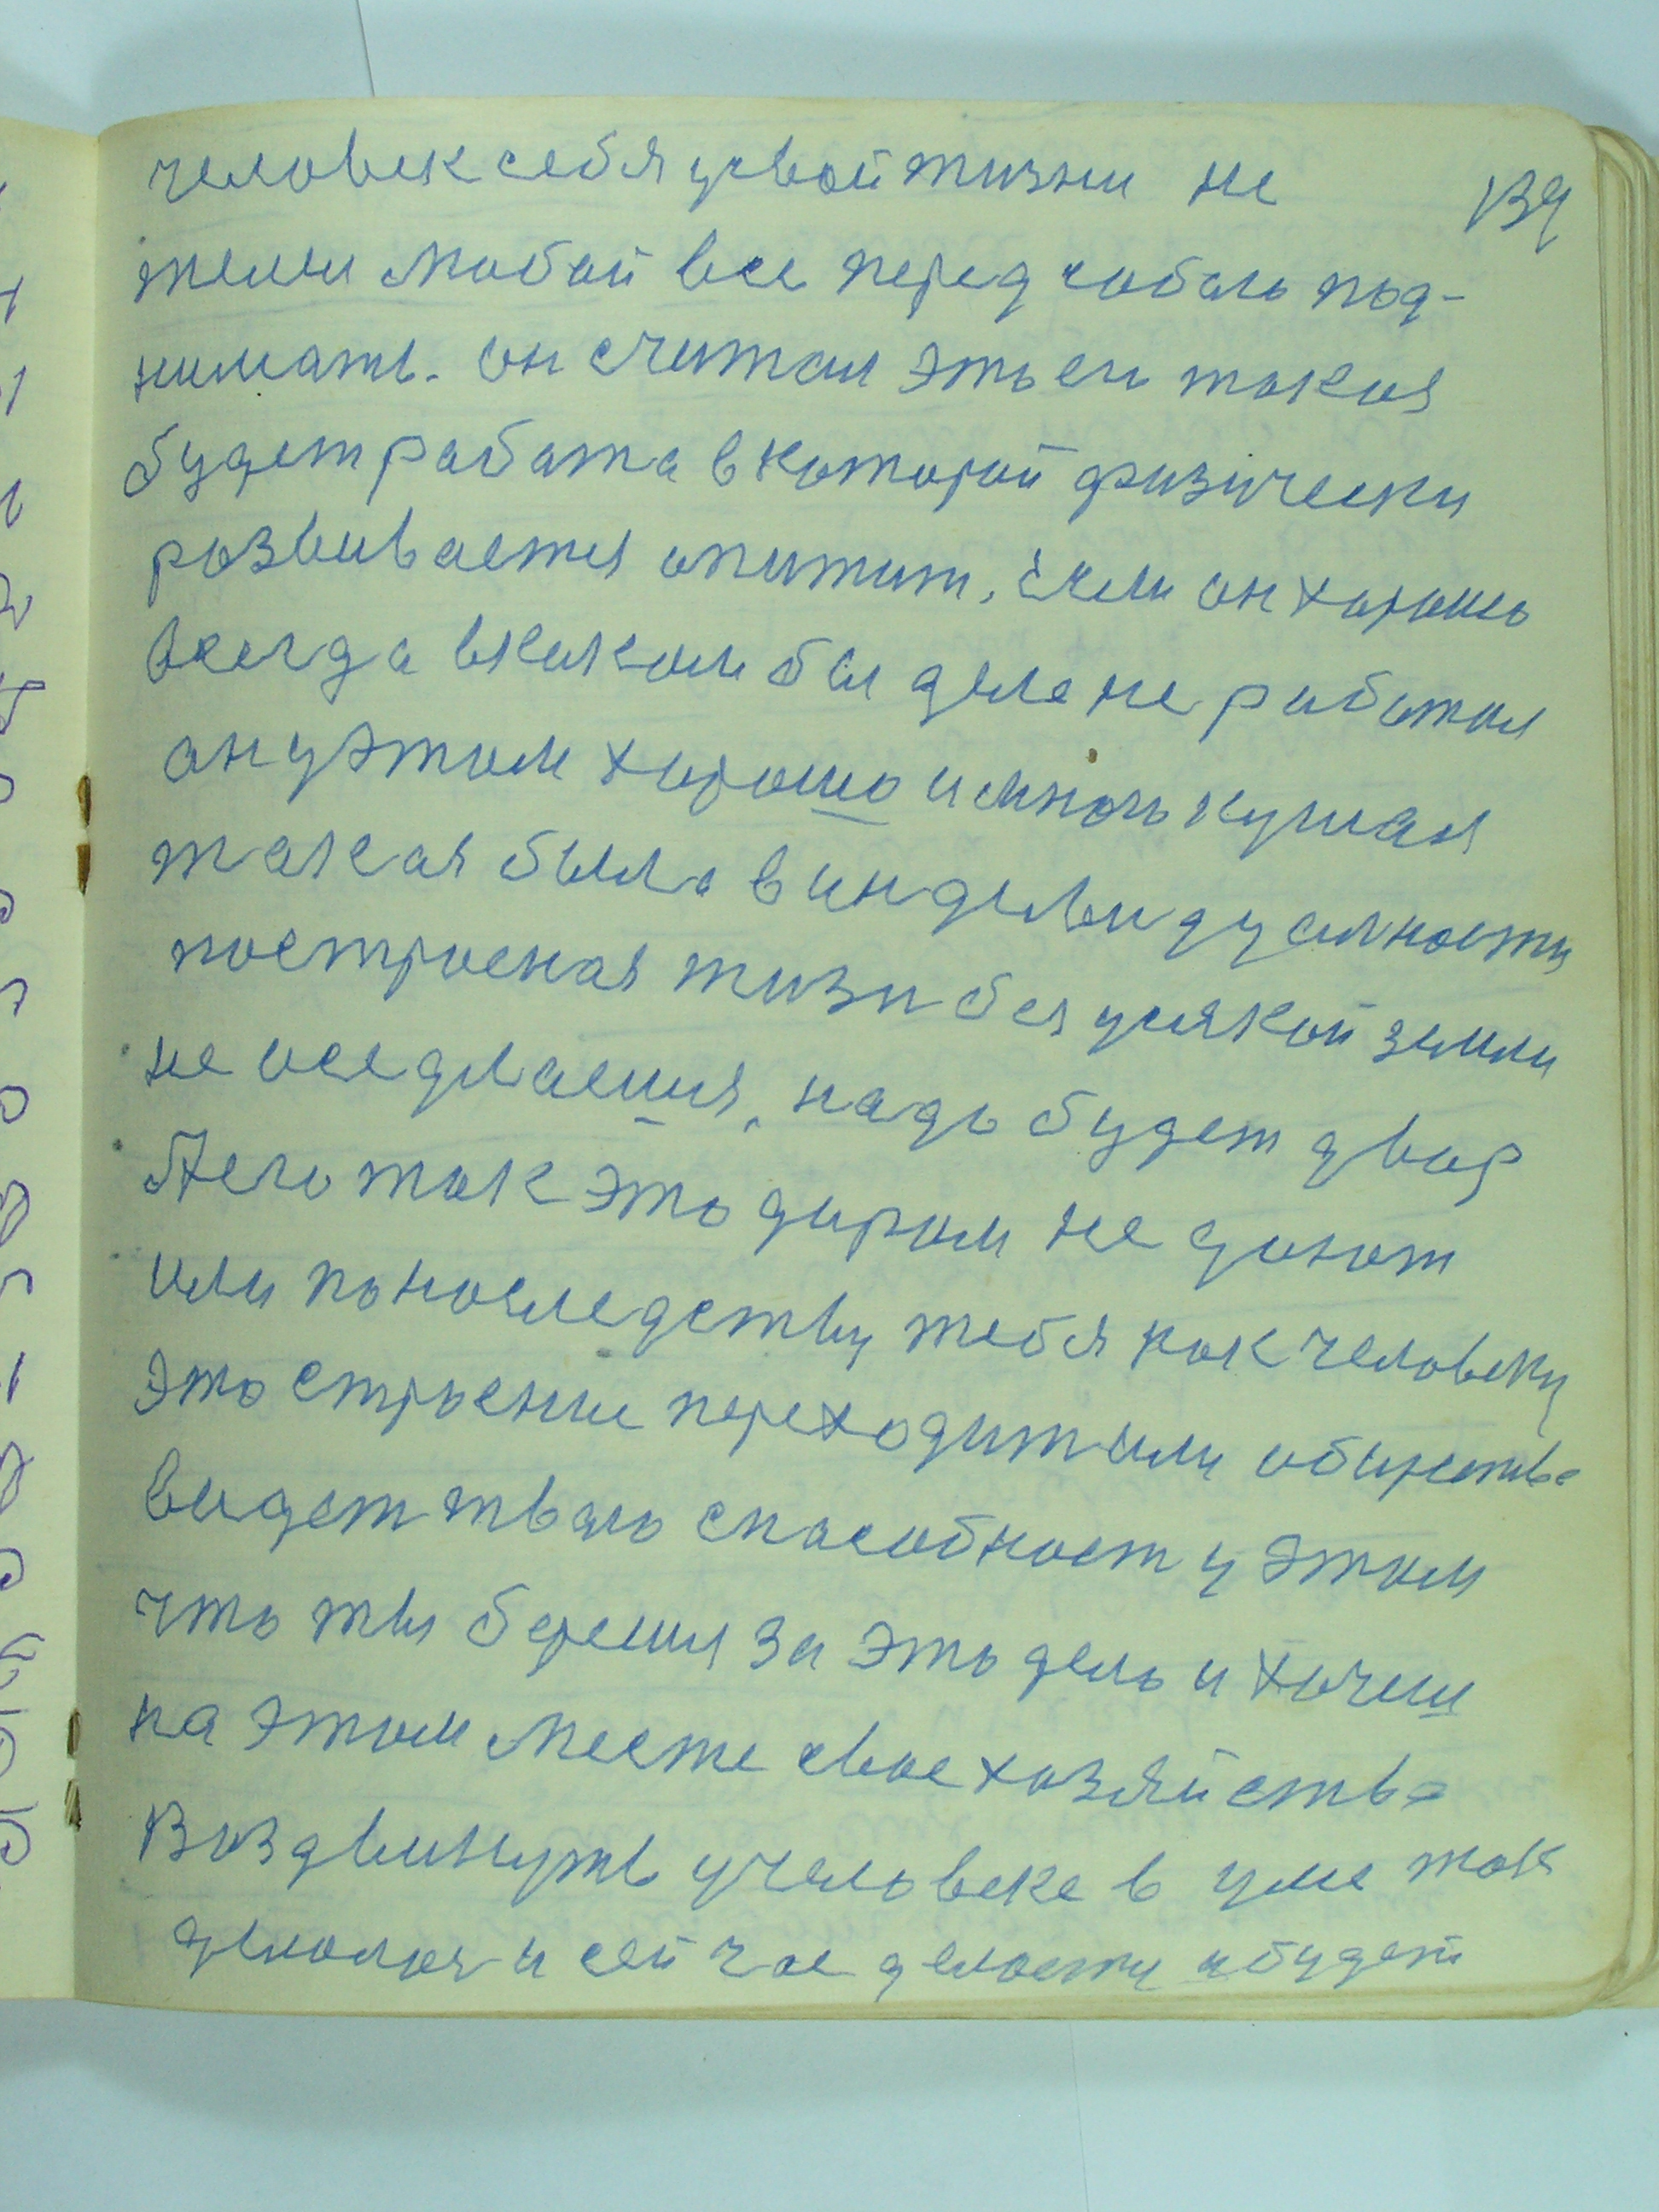 139
человек себя у свой жизни не
жели мобой все перед собою под-
нимать. он считал это его такая
будет работа в которой физически
розвивается апитит, если он хорошо
всегда в каком бы деле не работал
он у этом хорошо и много кушал
такая была в индевидуалности
построеная жизн без усякой земли
не обседлаешся, надо будет двор
А его так это даром не дают
или по наследству тебя как человеку
это строение переходит или общество
видет твою способност у этом
что ты берешся за это дело и хочеш
на этом месте свое хозяйство
Воздвинуть у человеке в уме так
делолося и сейчас делается и будет